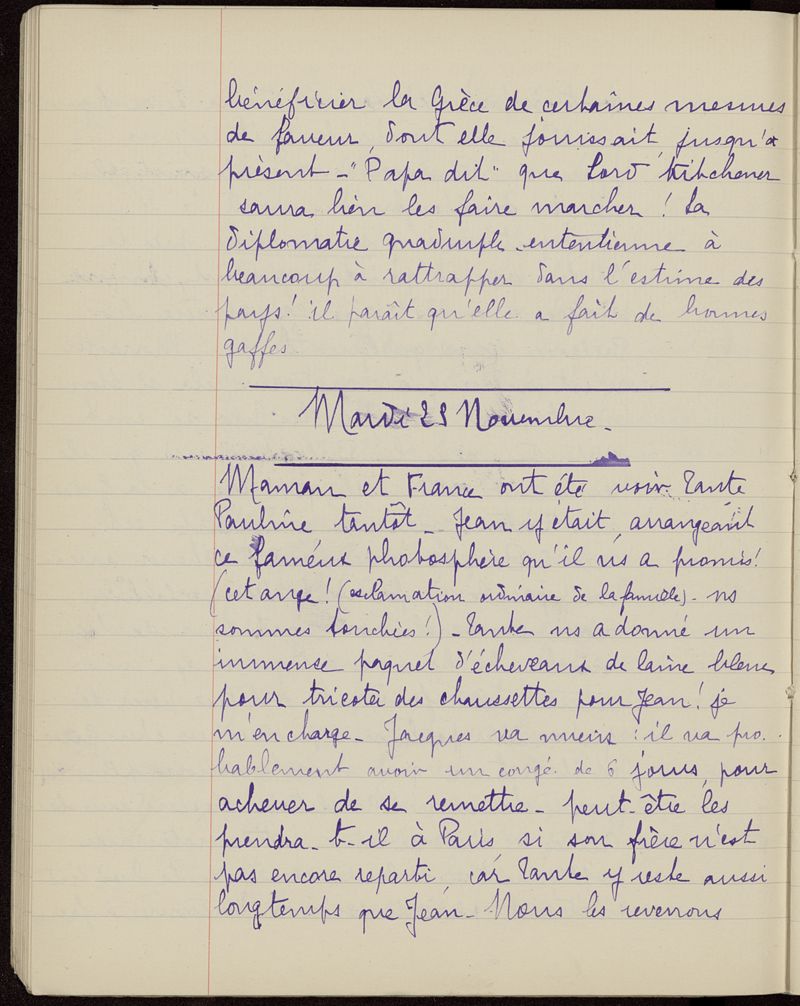 bénéficier la Grèce de certaines mesures
de faveur, dont elle jouissait jusqu'à
présent - "Papa dit" que Lord Kitchener
saura bien les faire marcher ! La
diplomatie quadruple-ententienne à
beaucoup à rattrapper dans l'estime des
pays! il paraît qu'elle a fait de bonnes
gaffes
Mardi 23 Novembre.
Maman et France ont été voir Tante
Pauline tantôt - Jean y était, arrangeant
ce fameux photosphère qu'il ns a promis!
(cet ange! (exclamation ordinaire de la famille) - ns
sommes touchées!) - Tante ns a donné un
immense paquet d'écheveaux de laine bleue
pour tricoter des chaussettes pour Jean! je
m'en charge - Jacques va mieux : il va pro-
bablement avoir un congé de 6 jours, pour
achever de se remettre - peut-être les
prendra-t-il à Paris si son frère n'est
pas encore reparti, car Tante y reste aussi
longtemps que Jean - Nous les reverrons